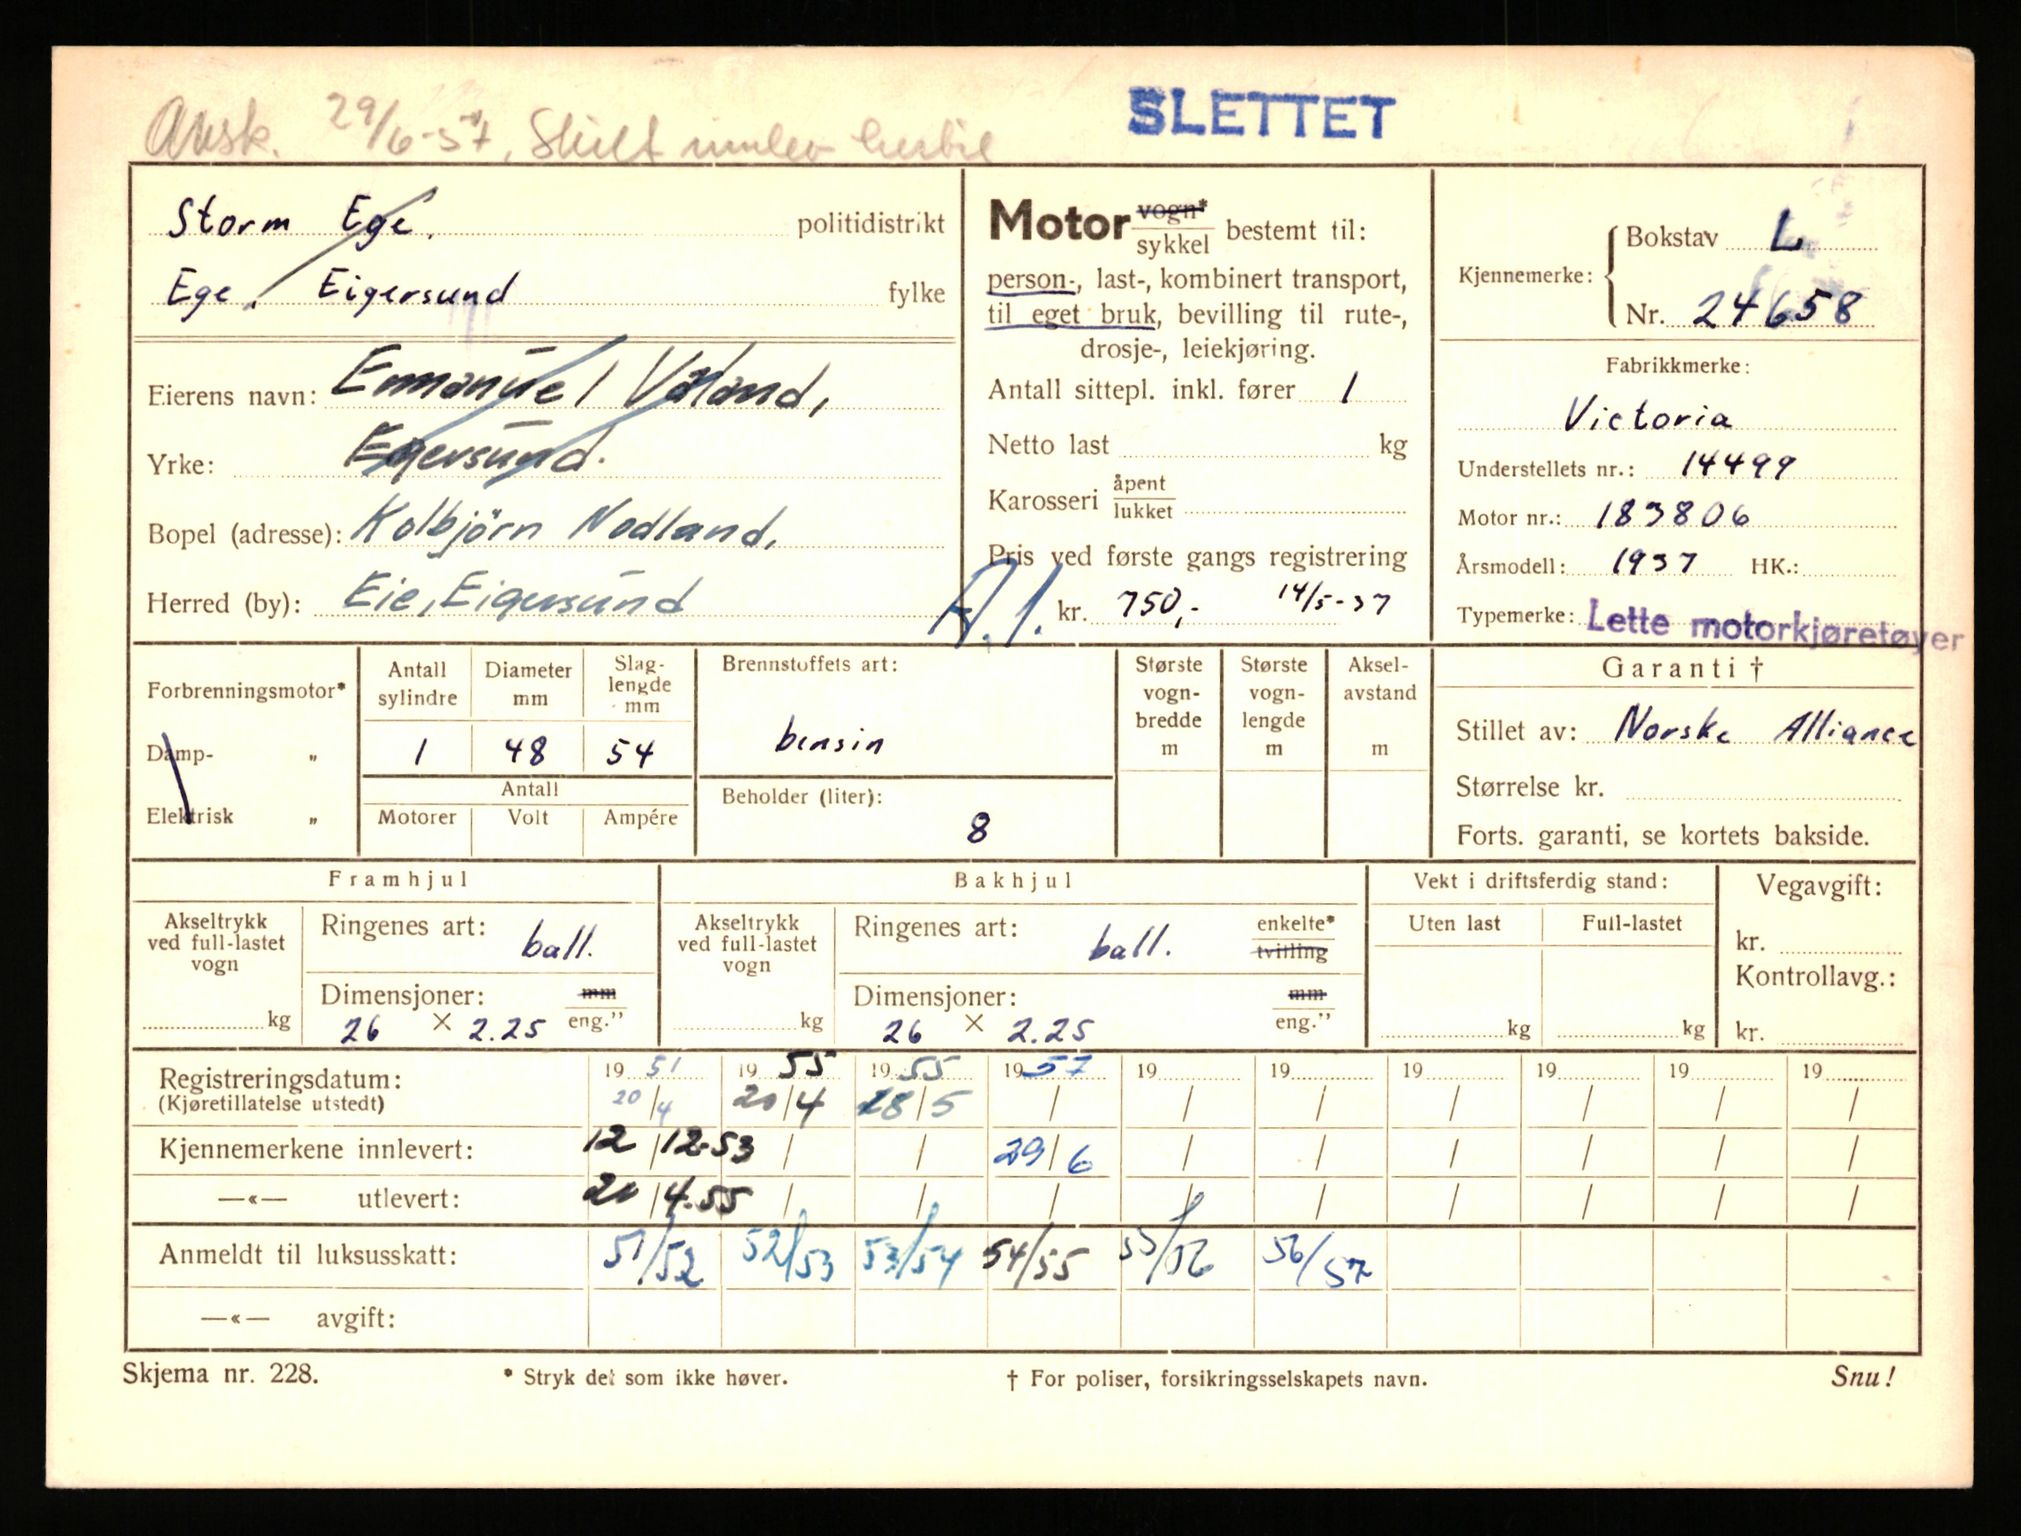 29/6-57, Skilt innlev
SLETTET
Storm Ege. politidistrikt
Ege, Eigersund fylke
Eierens navn: Emmanuel Valand,
Yrke: Egersund.
Bopel (adresse): Kolbjörn Nodland,
Herred (by): Eie, Eigersund
Motor vogn* sykkel bestemt til:
person-, last-, kombinert transport,
til eget bruk, bevilling til rute-,
drosje-, leiekjøring.
Antall sittepl. inkl. fører 1
Netto last kg
Karosseri åpent lukket
Pris ved første gangs registrering
A.1. kr. 750,- 14/5-37
Kjennemerke: Bokstav L
Nr. 24658
Fabrikkmerke:
Victoria
Understellets nr.: 14499
Motor nr.: 183806
Årsmodell: 1937 HK.:
Typemerke: Lette motorkjøretøyer
Forbrenningsmotor*
Damp- „
Elektrisk „
Antall sylindre Diameter mm Slag-lengde mm
1 48 54
Antall
Motorer Volt Ampére
Brennstoffets art:
bensin
Beholder (liter):
8
Største vogn-bredde m
Største vogn-lengde m
Aksel-avstand m
Garanti †
Stillet av: Norske Alliance
Størrelse kr.
Forts. garanti, se kortets bakside.
Framhjul
Akseltrykk ved full-lastet vogn
kg
Ringenes art: ball.
Dimensjoner: mm
26 × 2.25 eng."
Bakhjul
Akseltrykk ved full-lastet vogn
kg
Ringenes art: ball. enkelte* tvilling
Dimensjoner: mm
26 × 2.25 eng."
Vekt i driftsferdig stand:
Uten last Full-lastet
kg kg
Vegavgift:
kr.
Kontrollavg.:
kr.
Registreringsdatum: 19 51 19 55 19 55 19 57 19 19 19 19 19 19
(Kjøretillatelse utstedt) 20/4 20/4 28/5 / / / / / / /
Kjennemerkene innlevert: 12/12-53 / / 29/6 / / / / / /
—«— utlevert: 20/4.55 / / / / / / / / /
Anmeldt til luksusskatt: 51/52 52/53 53/54 54/55 55/56 56/57
—«— avgift:
Skjema nr. 228. * Stryk det som ikke høver. † For poliser, forsikringsselskapets navn. Snu!